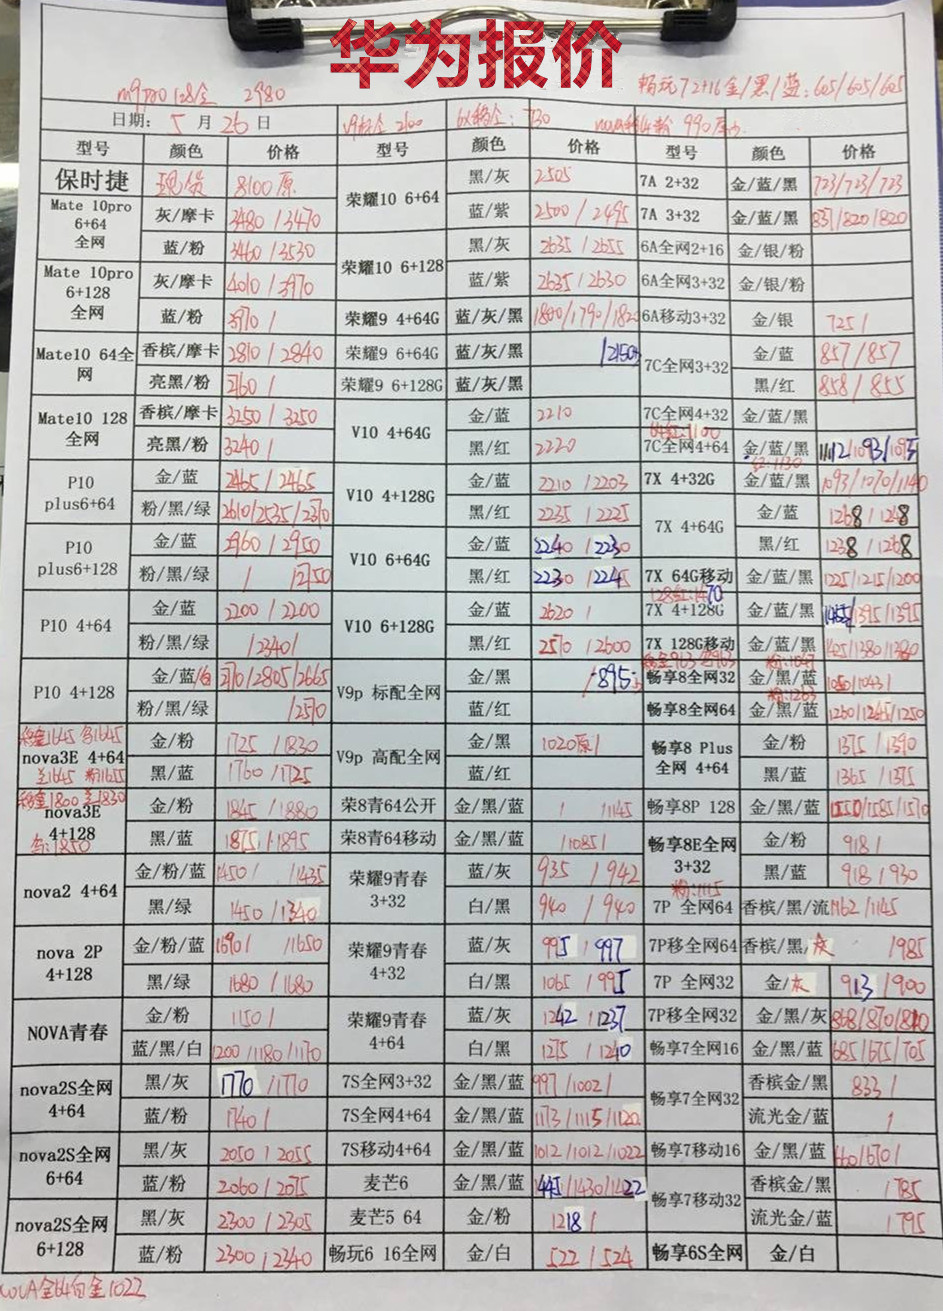 华为报价
m9pro 128全 2980 畅玩7 2+16金/黑/蓝:605/605/605
日期: 5 月 26 日 6x 730 990
型号 颜色 价格 型号 颜色 价格 型号 颜色 价格
保时捷 现货 8100原 荣耀10 6+64 黑/灰 2505 7A 2+32 金/蓝/黑 723/723/723
Mate 10pro 6+64 全网 灰/摩卡 3480/3470 蓝/紫 2500/2495 7A 3+32 金/蓝/黑 837/820/820
蓝/粉 3460/3530 荣耀10 6+128 黑/灰 2635/2655 6A全网2+16 金/银/粉
Mate 10pro 6+128 全网 灰/摩卡 4010/3970 蓝/紫 2635/2630 6A全网3+32 金/银/粉
蓝/粉 3970/ 荣耀9 4+64G 蓝/灰/黑 1800/1790/1820 6A移动3+32 金/银 725/
Mate10 64全网 香槟/摩卡 2810/2840 荣耀9 6+64G 蓝/灰/黑 /2150 7C全网3+32 金/蓝 857/857
亮黑/粉 2760/ 荣耀9 6+128G 蓝/灰/黑 黑/红 858/855
Mate10 128全网 香槟/摩卡 3250/3250 V10 4+64G 金/蓝 2210 7C全网4+32 金/蓝/黑
亮黑/粉 3240/ 黑/红 2220 7C全网4+64 金/蓝/黑 1112/1093/1095
P10 plus6+64 金/蓝 2465/2465 V10 4+128G 金/蓝 2210/2203 7X 4+32G 金/蓝/黑 1093/1070/1140
粉/黑/绿 2610/2535/2370 黑/红 2235/2225 7X 4+64G 金/蓝 1268/1248
P10 plus6+128 金/蓝 2960/2950 V10 6+64G 金/蓝 2240/2230 黑/红 1238/1268
粉/黑/绿 /2750 黑/红 2230/2245 7X 64G移动 金/蓝/黑 1225/1215/1200
128红:1470
P10 4+64 金/蓝 2200/2200 V10 6+128G 金/蓝 2620/ 7X 4+128G 金/蓝/黑 1455/1395/1395
粉/黑/绿 /2340/ 黑/红 2570/2600 7X 128G移动 金/蓝/黑 1415/1380/1380
粉:1047
P10 4+128 金/蓝/白 2710/2805/2665 V9p 标配全网 金/黑 /895 畅享8全网32 金/黑/蓝 1050/1043/
粉:1263
粉/黑/绿 /2570 蓝/红 畅享8全网64 金/黑/蓝 1260/1265/1250
nova3E 4+64 金/粉 1725/1830 V9p 高配全网 金/黑 1020原/ 畅享8 Plus 全网 4+64 金/粉 1375/1390
兰1645 粉1655 黑/蓝 1760/1725 蓝/红 黑/蓝 1365/1375
铂金1800 兰1830
nova3E 4+128 金/粉 1845/1880 荣8青64公开 金/黑/蓝 / /1145 畅享8P 128 金/黑/蓝 1550/1585/1570
黑/蓝 1875/1895 荣8青64移动 金/黑/蓝 /1085/ 畅享8E全网 3+32 金/粉 918/
nova2 4+64 金/粉/蓝 1450/ /1435 荣耀9青春 3+32 蓝/灰 935/942 黑/蓝 918/930
粉:1115
黑/绿 1450/1340 白/黑 940/940 7P 全网64 香槟/黑/流 1162/1145
nova 2P 4+128 金/粉/蓝 1690/ /1650 荣耀9青春 4+32 蓝/灰 995/997 7P移全网64 香槟/黑/灰 /985
黑/绿 1680/1680 白/黑 1065/995 7P 全网32 金/灰 913/900
NOVA青春 金/粉 1150/ 荣耀9青春 4+64 蓝/灰 1242/1237 7P移全网32 金/黑/灰 868/870/810
蓝/黑/白 1200/1180/1170 白/黑 1275/1240 畅享7全网16 金/黑/蓝 685/675/705
nova2S全网 4+64 黑/灰 1770/1770 7S全网3+32 金/黑/蓝 997/1002/ 畅享7全网32 香槟金/黑 833/
蓝/粉 1740/ 7S全网4+64 金/黑/蓝 1173/1115/1120 流光金/蓝 /
nova2S全网 6+64 黑/灰 2050/2055 7S移动4+64 金/黑/蓝 1012/1012/1022 畅享7移动16 金/黑/蓝 660/670/
蓝/粉 2060/2075 麦芒6 金/黑/蓝 1445/1430/1422 畅享7移动32 香槟金/黑 /785
nova2S全网 6+128 黑/灰 2300/2305 麦芒5 64 金/粉 1218/ 流光金/蓝 /795
蓝/粉 2300/2340 畅玩6 16全网 金/白 522/524 畅享6S全网 金/白
NOVA全64白金1022